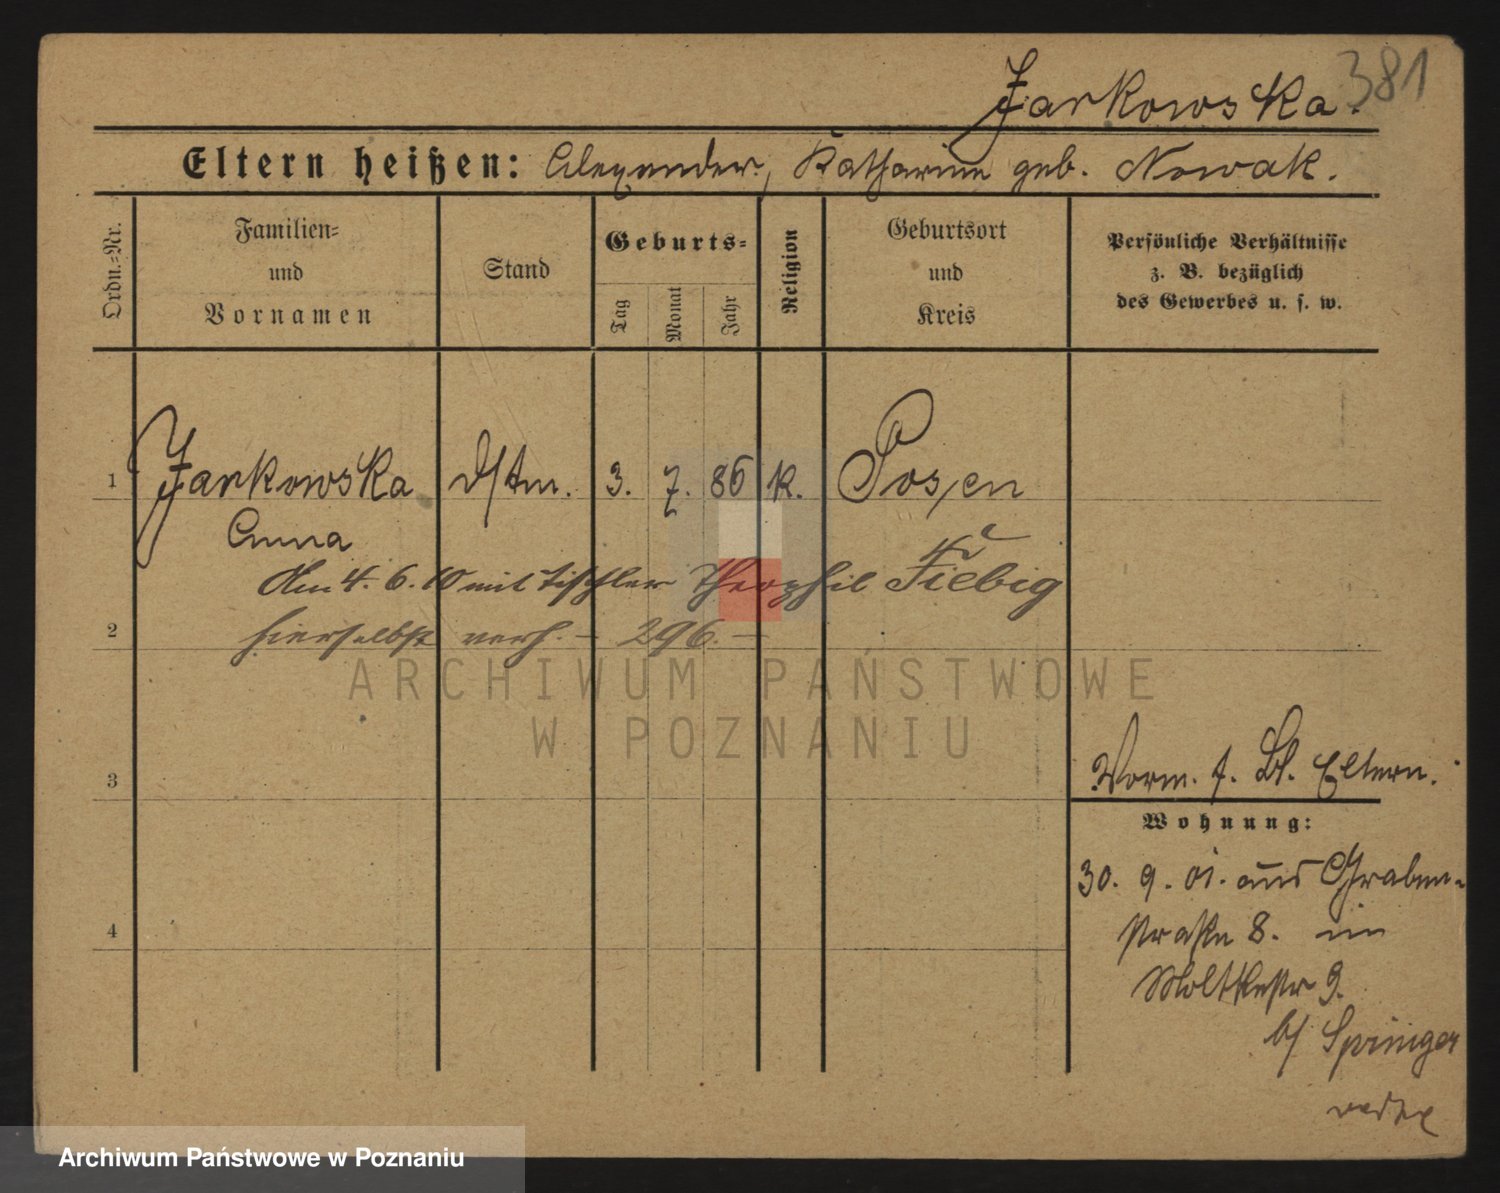 381
Jarkowska.
Eltern heißen: Alexander, Katharina geb. Nowak.
Ordn.=Nr.
Familien=
und
Vornamen
Stand
Geburts=
Tag
Monat
Jahr
Religion
Geburtsort
und
Kreis
Persönliche Verhältnisse
z. B. bezüglich
des Gewerbes u. s. w.
1 Jarkowska 3. 7. 86 k. Posen
Anna
Am 4. 6. 10 mit Tischler Theophil Fiebig
2 hierselbst verh. – 296. –
ARCHIWUM PAŃSTWOWE
W POZNANIU
3 Vorm. s. Bl. Eltern.
Wohnung:
30. 9. 01. aus Graben-
4 straße 8. in
Moltkestr 9.
b/ Springer
verte
Archiwum Państwowe w Poznaniu